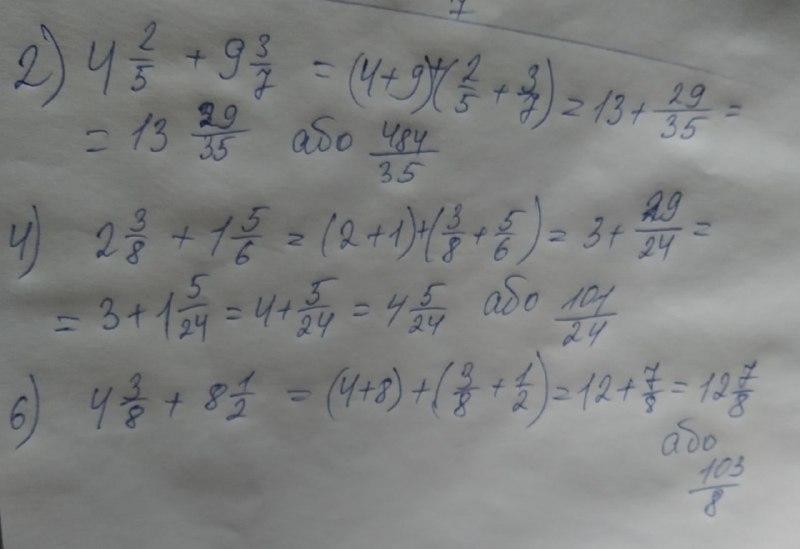 7
2) 4 2/5 + 9 3/7 = (4+9)+(2/5 + 3/7) = 13 + 29/35 =
= 13 29/35 або 484/35
4) 2 3/8 + 1 5/6 = (2+1)+(3/8 + 5/6) = 3 + 29/24 =
= 3 + 1 5/24 = 4 + 5/24 = 4 5/24 або 101/24
6) 4 3/8 + 8 1/2 = (4+8) + (3/8 + 1/2) = 12 + 7/8 = 12 7/8
або
103/8